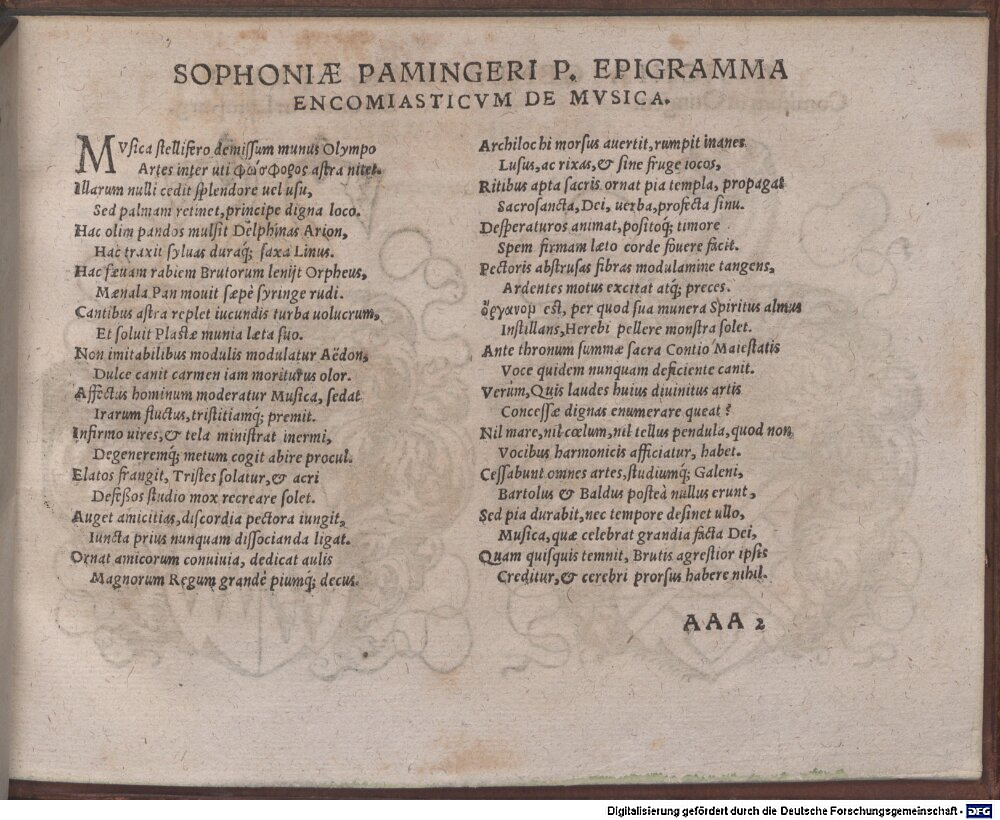 SOPHONIÆ PAMINGERI P. EPIGRAMMA
ENCOMIASTICVM DE MVSICA.
MVſica ſtellifero demiſſum munus Olympo
Artes inter uti φώσφορος aſtra nitet.
Illarum nulli cedit ſplendore uel uſu,
Sed palmam retinet, principe digna loco.
Hac olim pandos mulſit Delphinas Arion,
Hac traxit ſyluas duraq; ſaxa Linus.
Hac ſæuam rabiem Brutorum lenijt Orpheus,
Mænala Pan mouit ſæpè ſyringe rudi.
Cantibus aſtra replet iucundis turba uolucrum,
Et ſoluit Plaſtæ munia læta ſuo.
Non imitabilibus modulis modulatur Aëdon,
Dulce canit carmen iam moriturus olor.
Affectus hominum moderatur Muſica, ſedat
Irarum fluctus, triſtitiamq; premit.
Infirmo uires, & tela miniſtrat inermi,
Degeneremq; metum cogit abire procul.
Elatos frangit, Triſtes ſolatur, & acri
Defeßos ſtudio mox recreare ſolet.
Auget amicitias, diſcordia pectora iungit,
Iuncta prius nunquam diſſocianda ligat.
Ornat amicorum conuiuia, dedicat aulis
Magnorum Regum grande piumq; decus.
Archilochi morſus auertit, rumpit inanes
Luſus, ac rixas, & ſine fruge iocos,
Ritibus apta ſacris ornat pia templa, propagat
Sacroſancta, Dei, uerba, profecta ſinu.
Deſperaturos animat, poſitoq; timore
Spem firmam læto corde fouere facit.
Pectoris abſtruſas fibras modulamine tangens,
Ardentes motus excitat atq; preces.
ὄργανομ eſt, per quod ſua munera Spiritus almus
Inſtillans, Herebi pellere monſtra ſolet.
Ante thronum ſummæ ſacra Contio Maieſtatis
Voce quidem nunquam deficiente canit.
Verùm, Quis laudes huius diuinitus artis
Conceſſæ dignas enumerare queat?
Nil mare, nil cœlum, nil tellus pendula, quod non
Vocibus harmonicis afficiatur, habet.
Ceſſabunt omnes artes, ſtudiumq; Galeni,
Bartolus & Baldus poſteà nullus erunt,
Sed pia durabit, nec tempore deſinet ullo,
Muſica, quæ celebrat grandia facta Dei,
Quam quiſquis temnit, Brutis agreſtior ipſis
Creditur, & cerebri prorſus habere nihil.
AAA 2
Digitalisierung gefördert durch die Deutsche Forschungsgemeinschaft - DFG